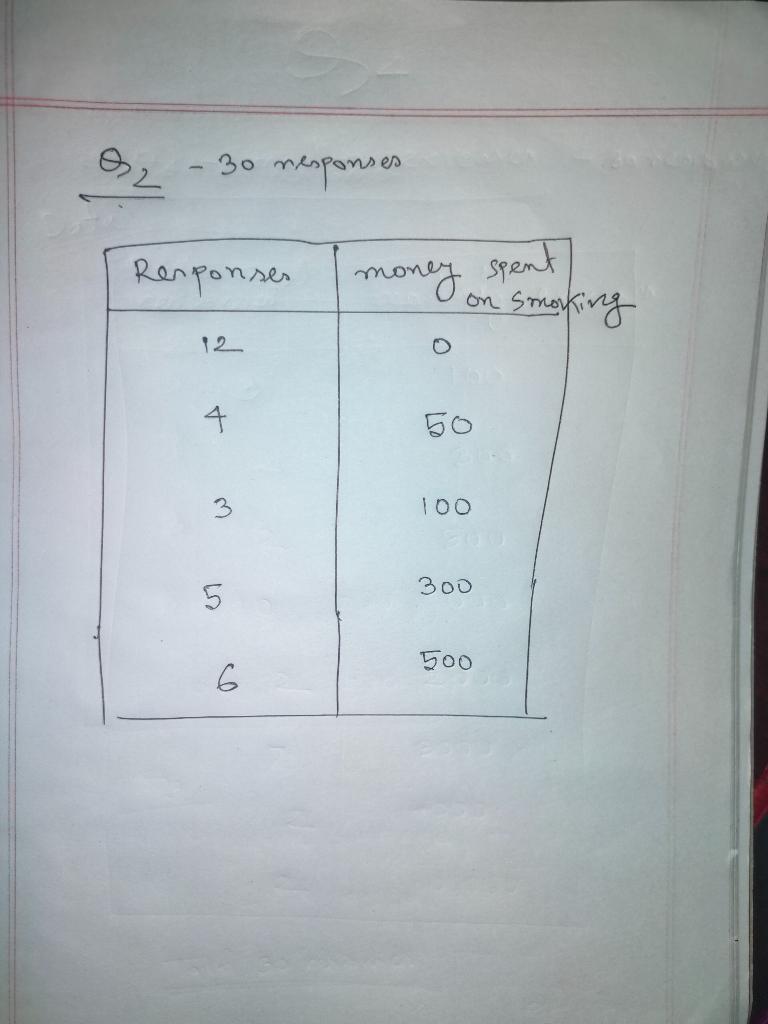 Q2 - 30 responses
Responses money spent
on smoking
12 0
4 50
3 100
5 300
6 500